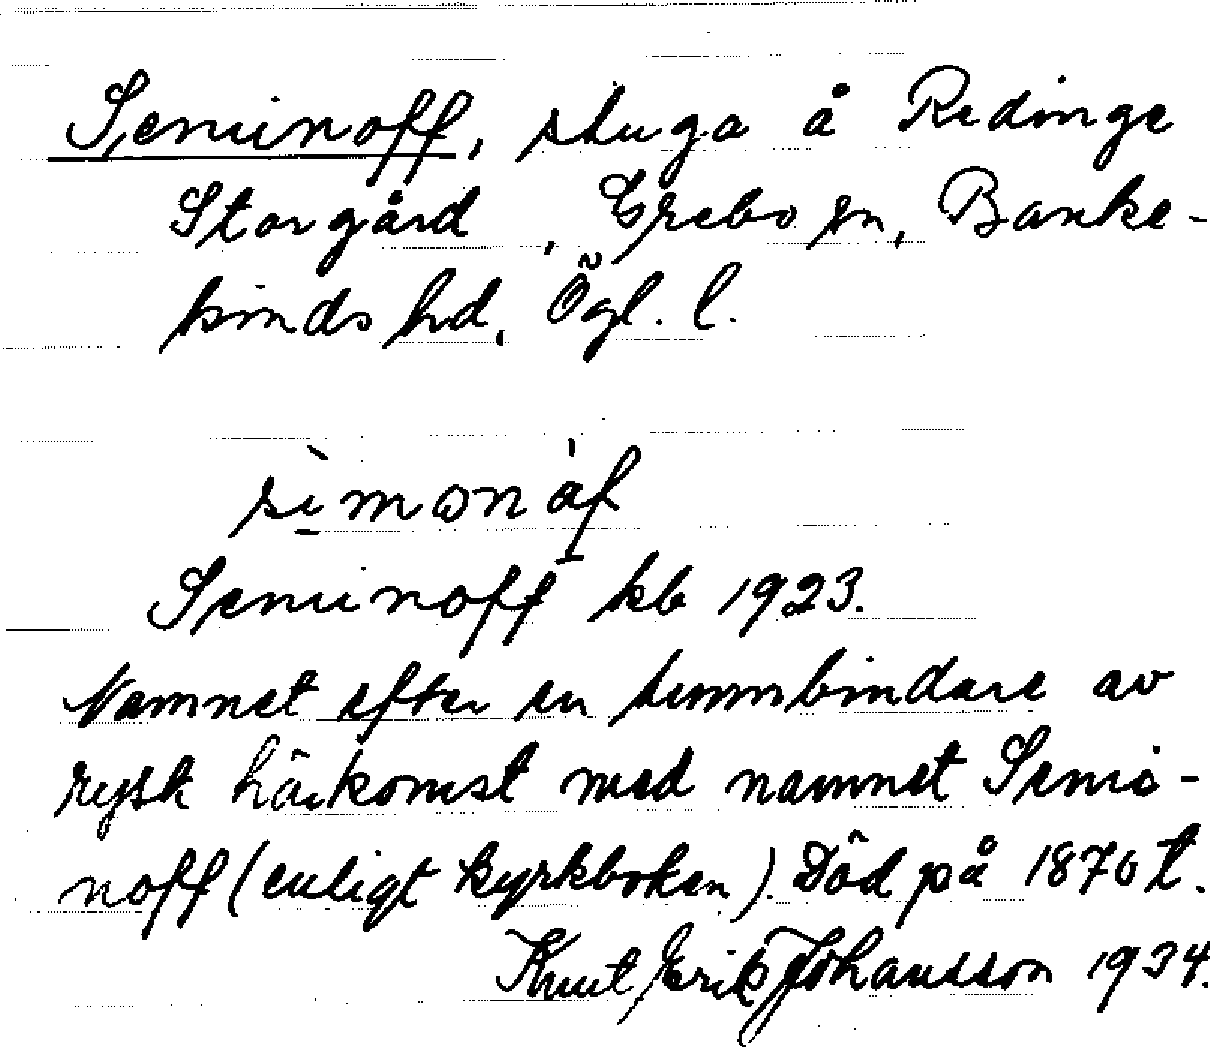 Seminoff, stuga å Redinge
Storgård, Grebo sn, Banke-
kinds hd, Ögl. l.
Seminoff kb 1923.
Namnet efter en tunnbindare av
rysk härkomst med namnet Semi-
noff (enligt kyrkboken). Död på 1870 t.
Knut Erik Johansson 1934.